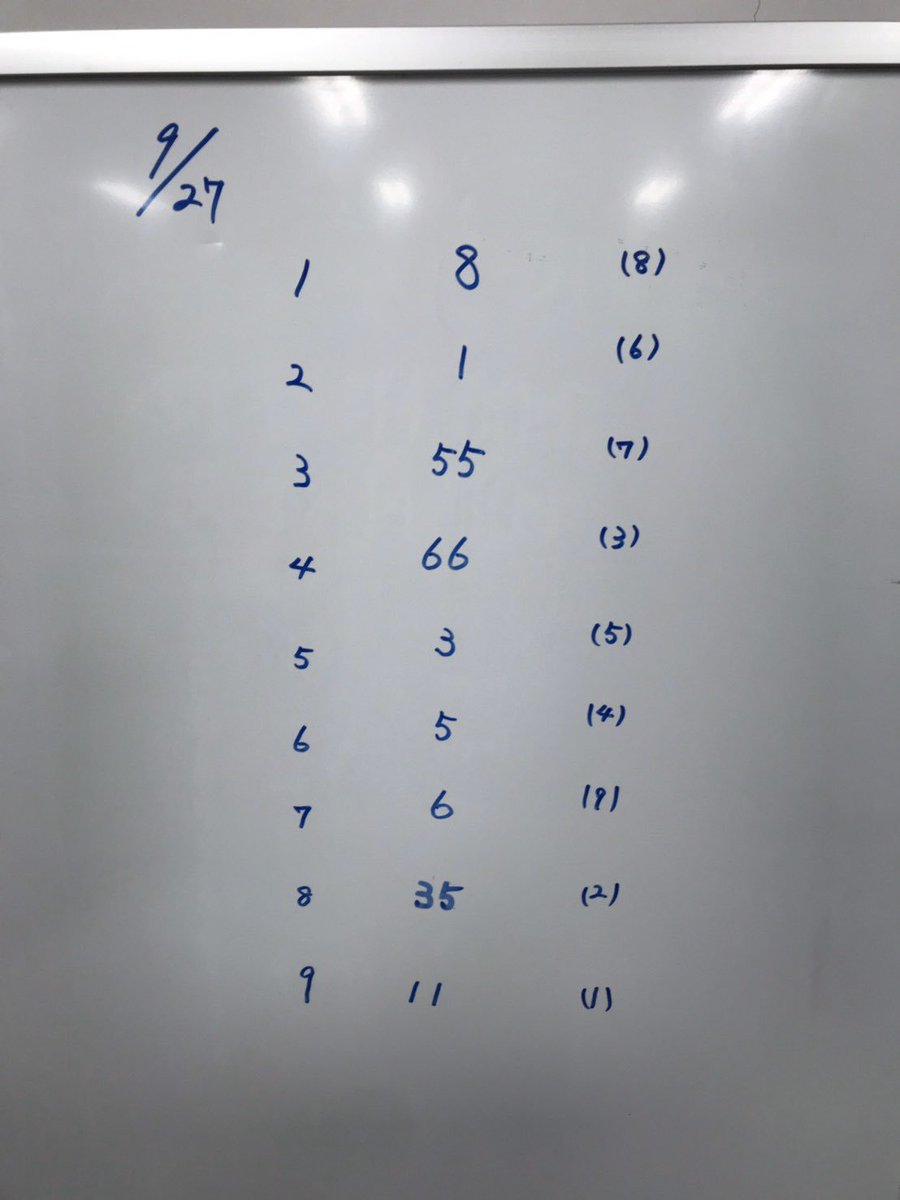 9/27
1 8 (8)
2 1 (6)
3 55 (7)
4 66 (3)
5 3 (5)
6 5 (4)
7 6 (9)
8 35 (2)
9 11 (1)